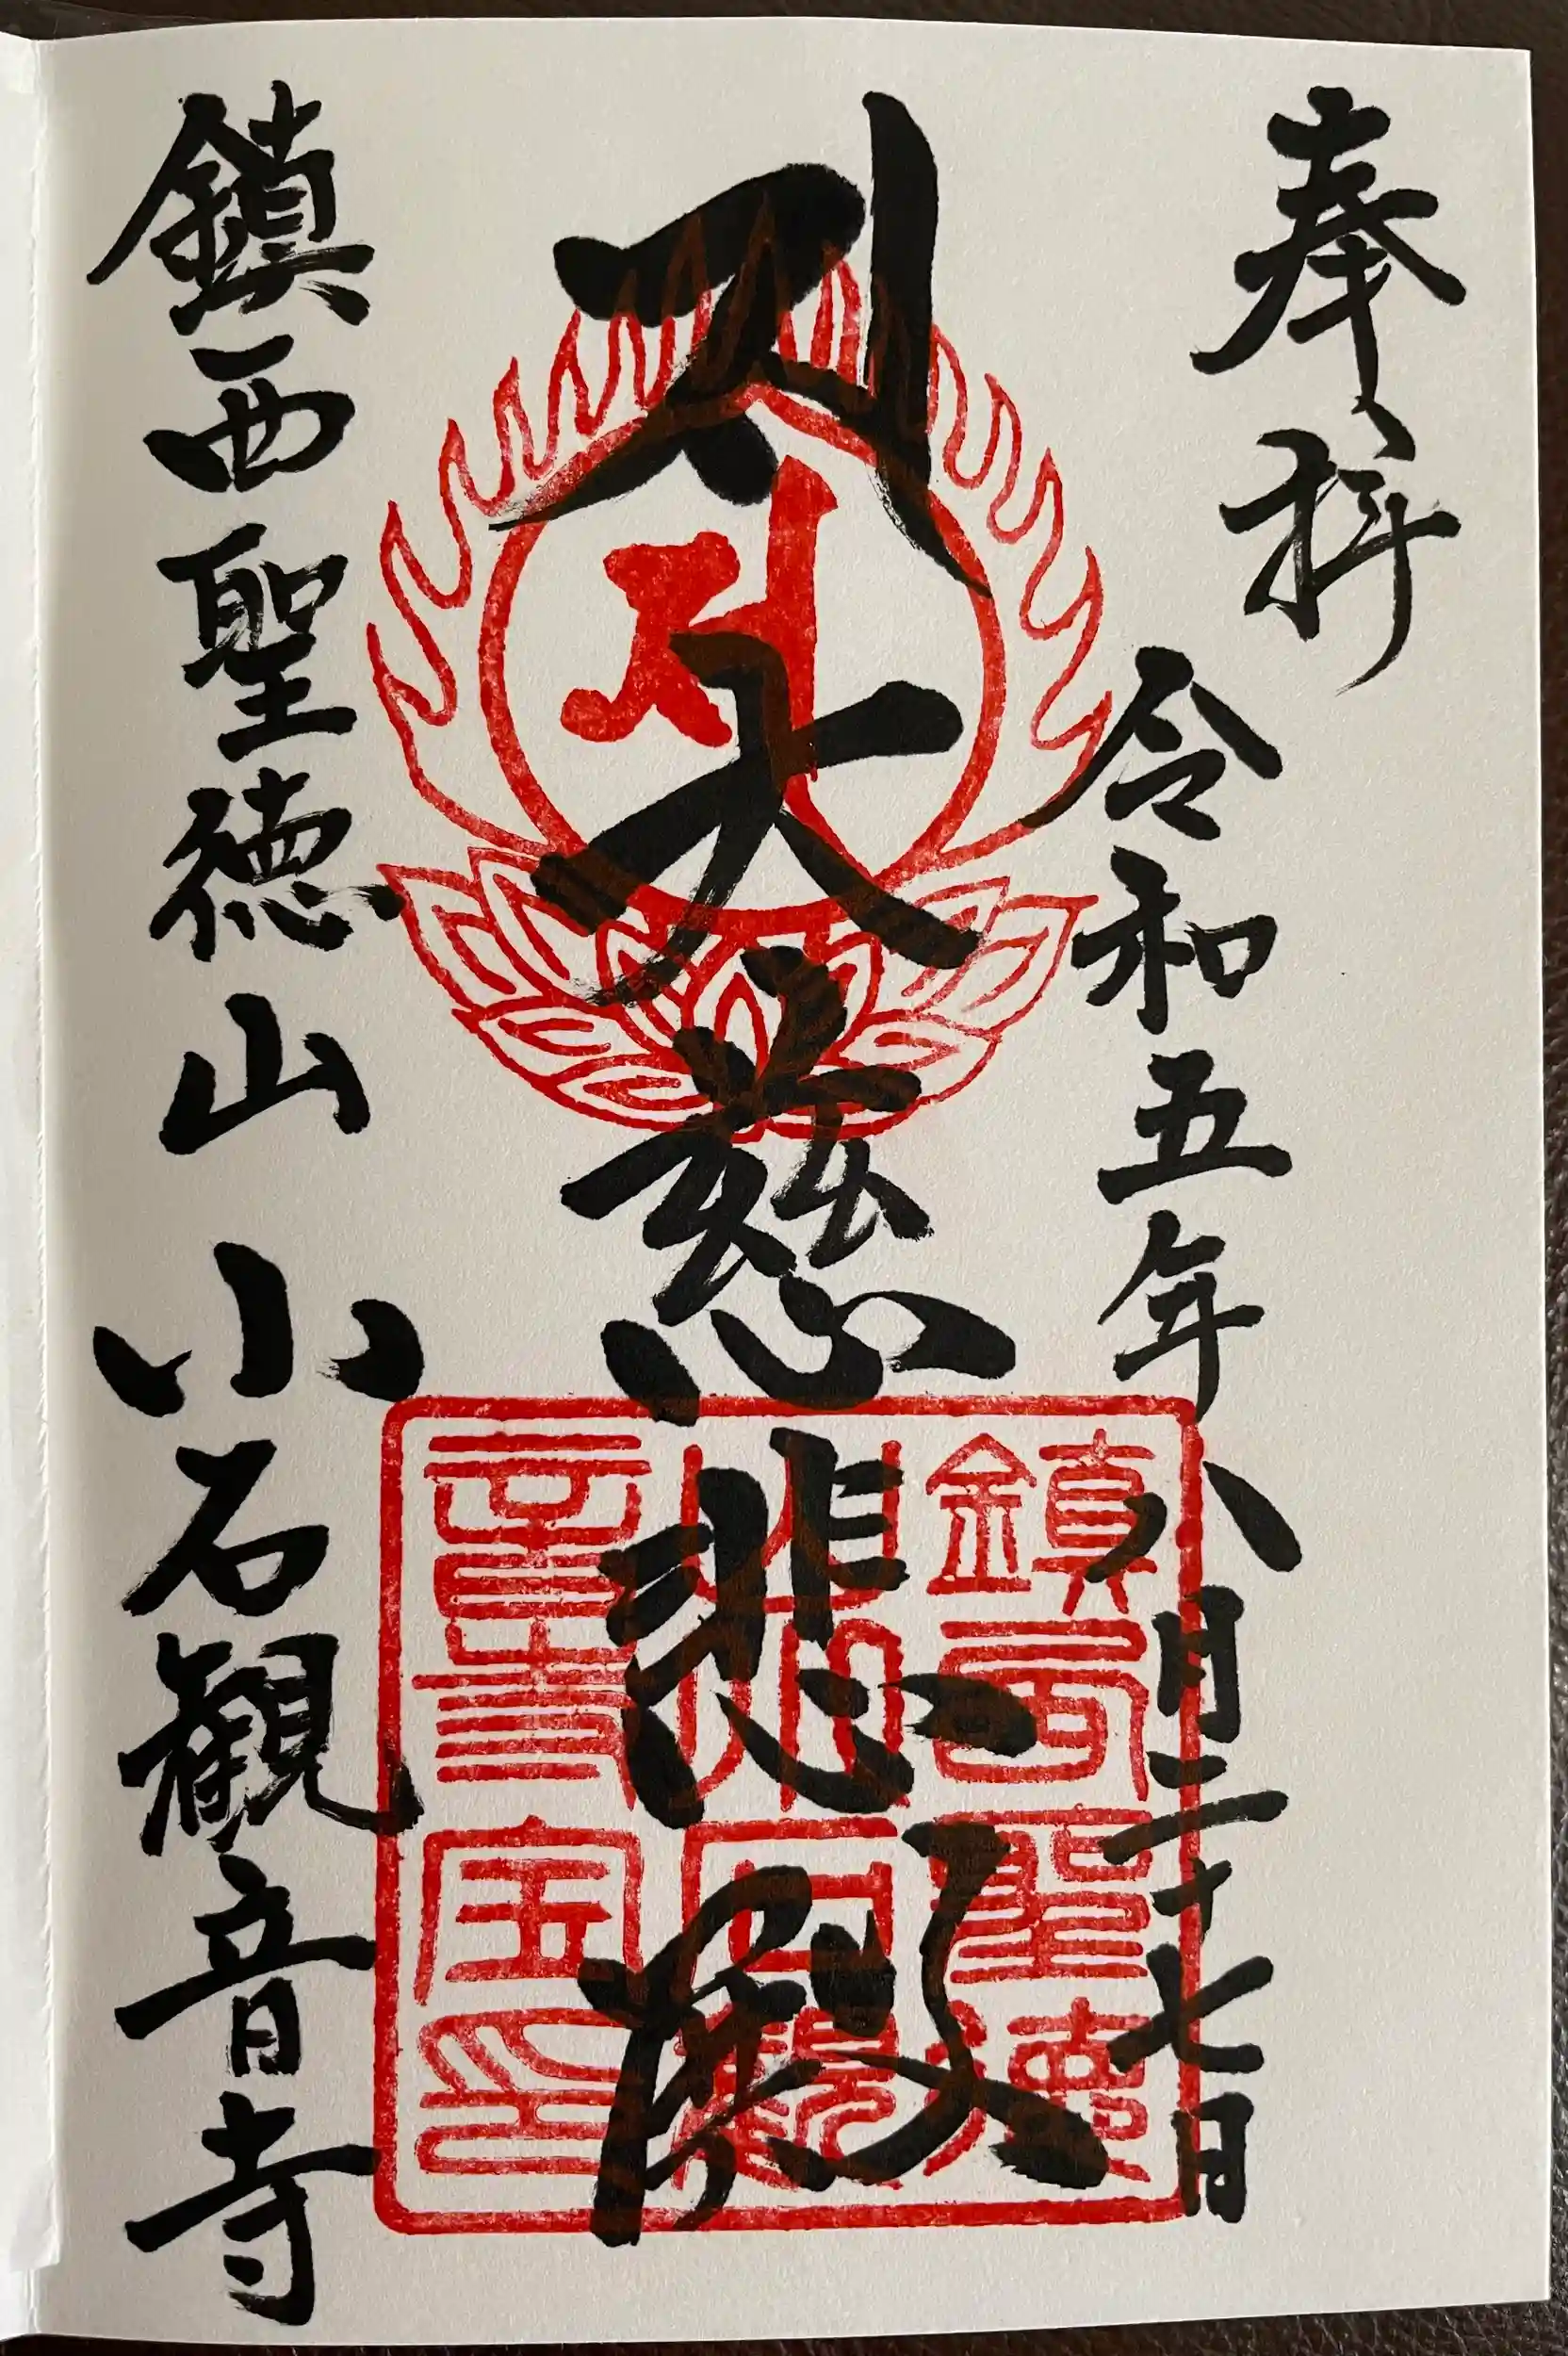 奉拝
令和五年八月二十七日
大慈悲殿
鎮西聖徳山 小石観音寺
鎮西聖徳
音寺宝印